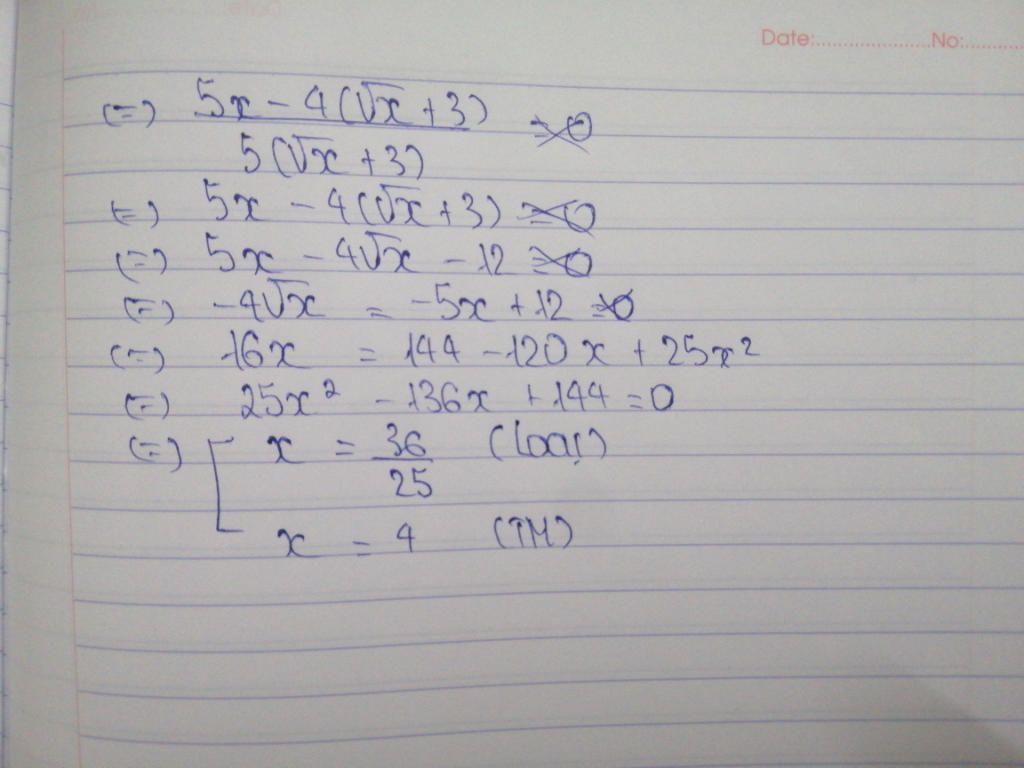 Date:..................... No:............
(=) 5x - 4(√x + 3) / 5(√x + 3) = 0
(=) 5x - 4(√x + 3) = 0
(=) 5x - 4√x - 12 = 0
(=) -4√x = -5x + 12 = 0
(=) 16x = 144 - 120x + 25x²
(=) 25x² - 136x + 144 = 0
(=) [ x = 36/25 (loại)
x = 4 (TM)